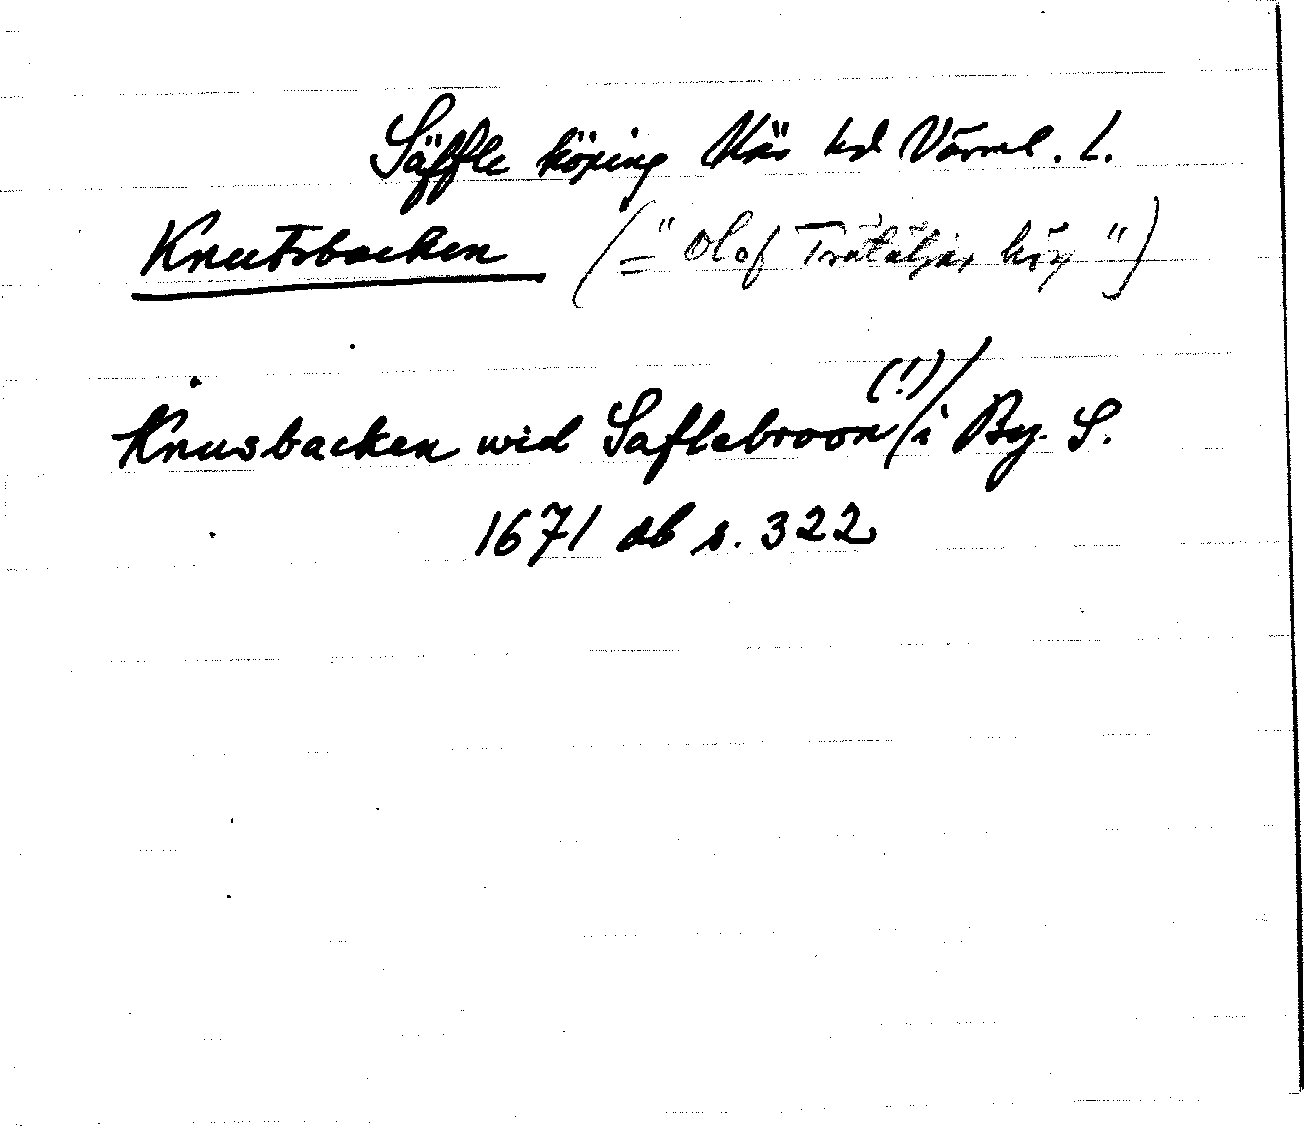 Säffle köping Näs hd Värml. l.
Knutsbacken (= "Olof Trätäljas hög")
Knusbacken wid Saflebroon (!) / i By. S.
1671 db s. 322